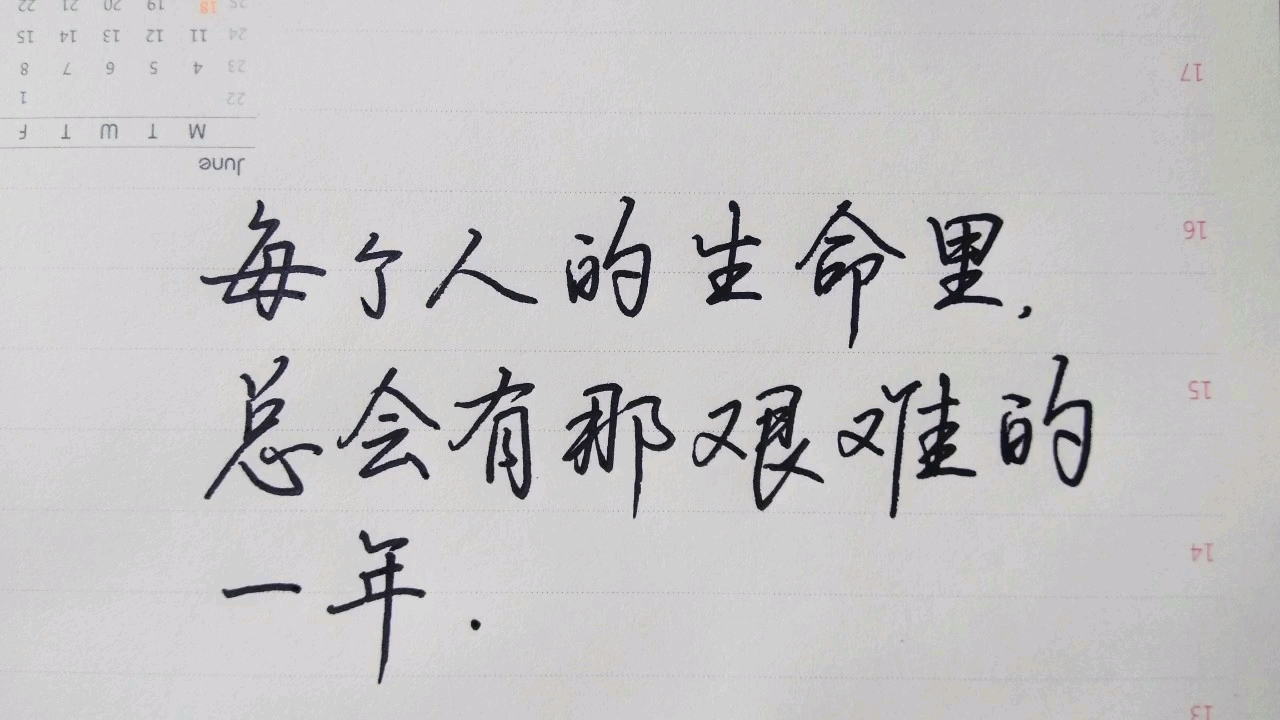 每个人的生命里,
总会有那艰难的
一年.
June
M T W T F
22 1
23 4 5 6 7 8
24 11 12 13 14 15
25 18 19 20 21 22
17
16
15
14
13